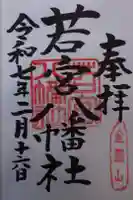 奉拝
若宮八幡社
令和七年二月十六日